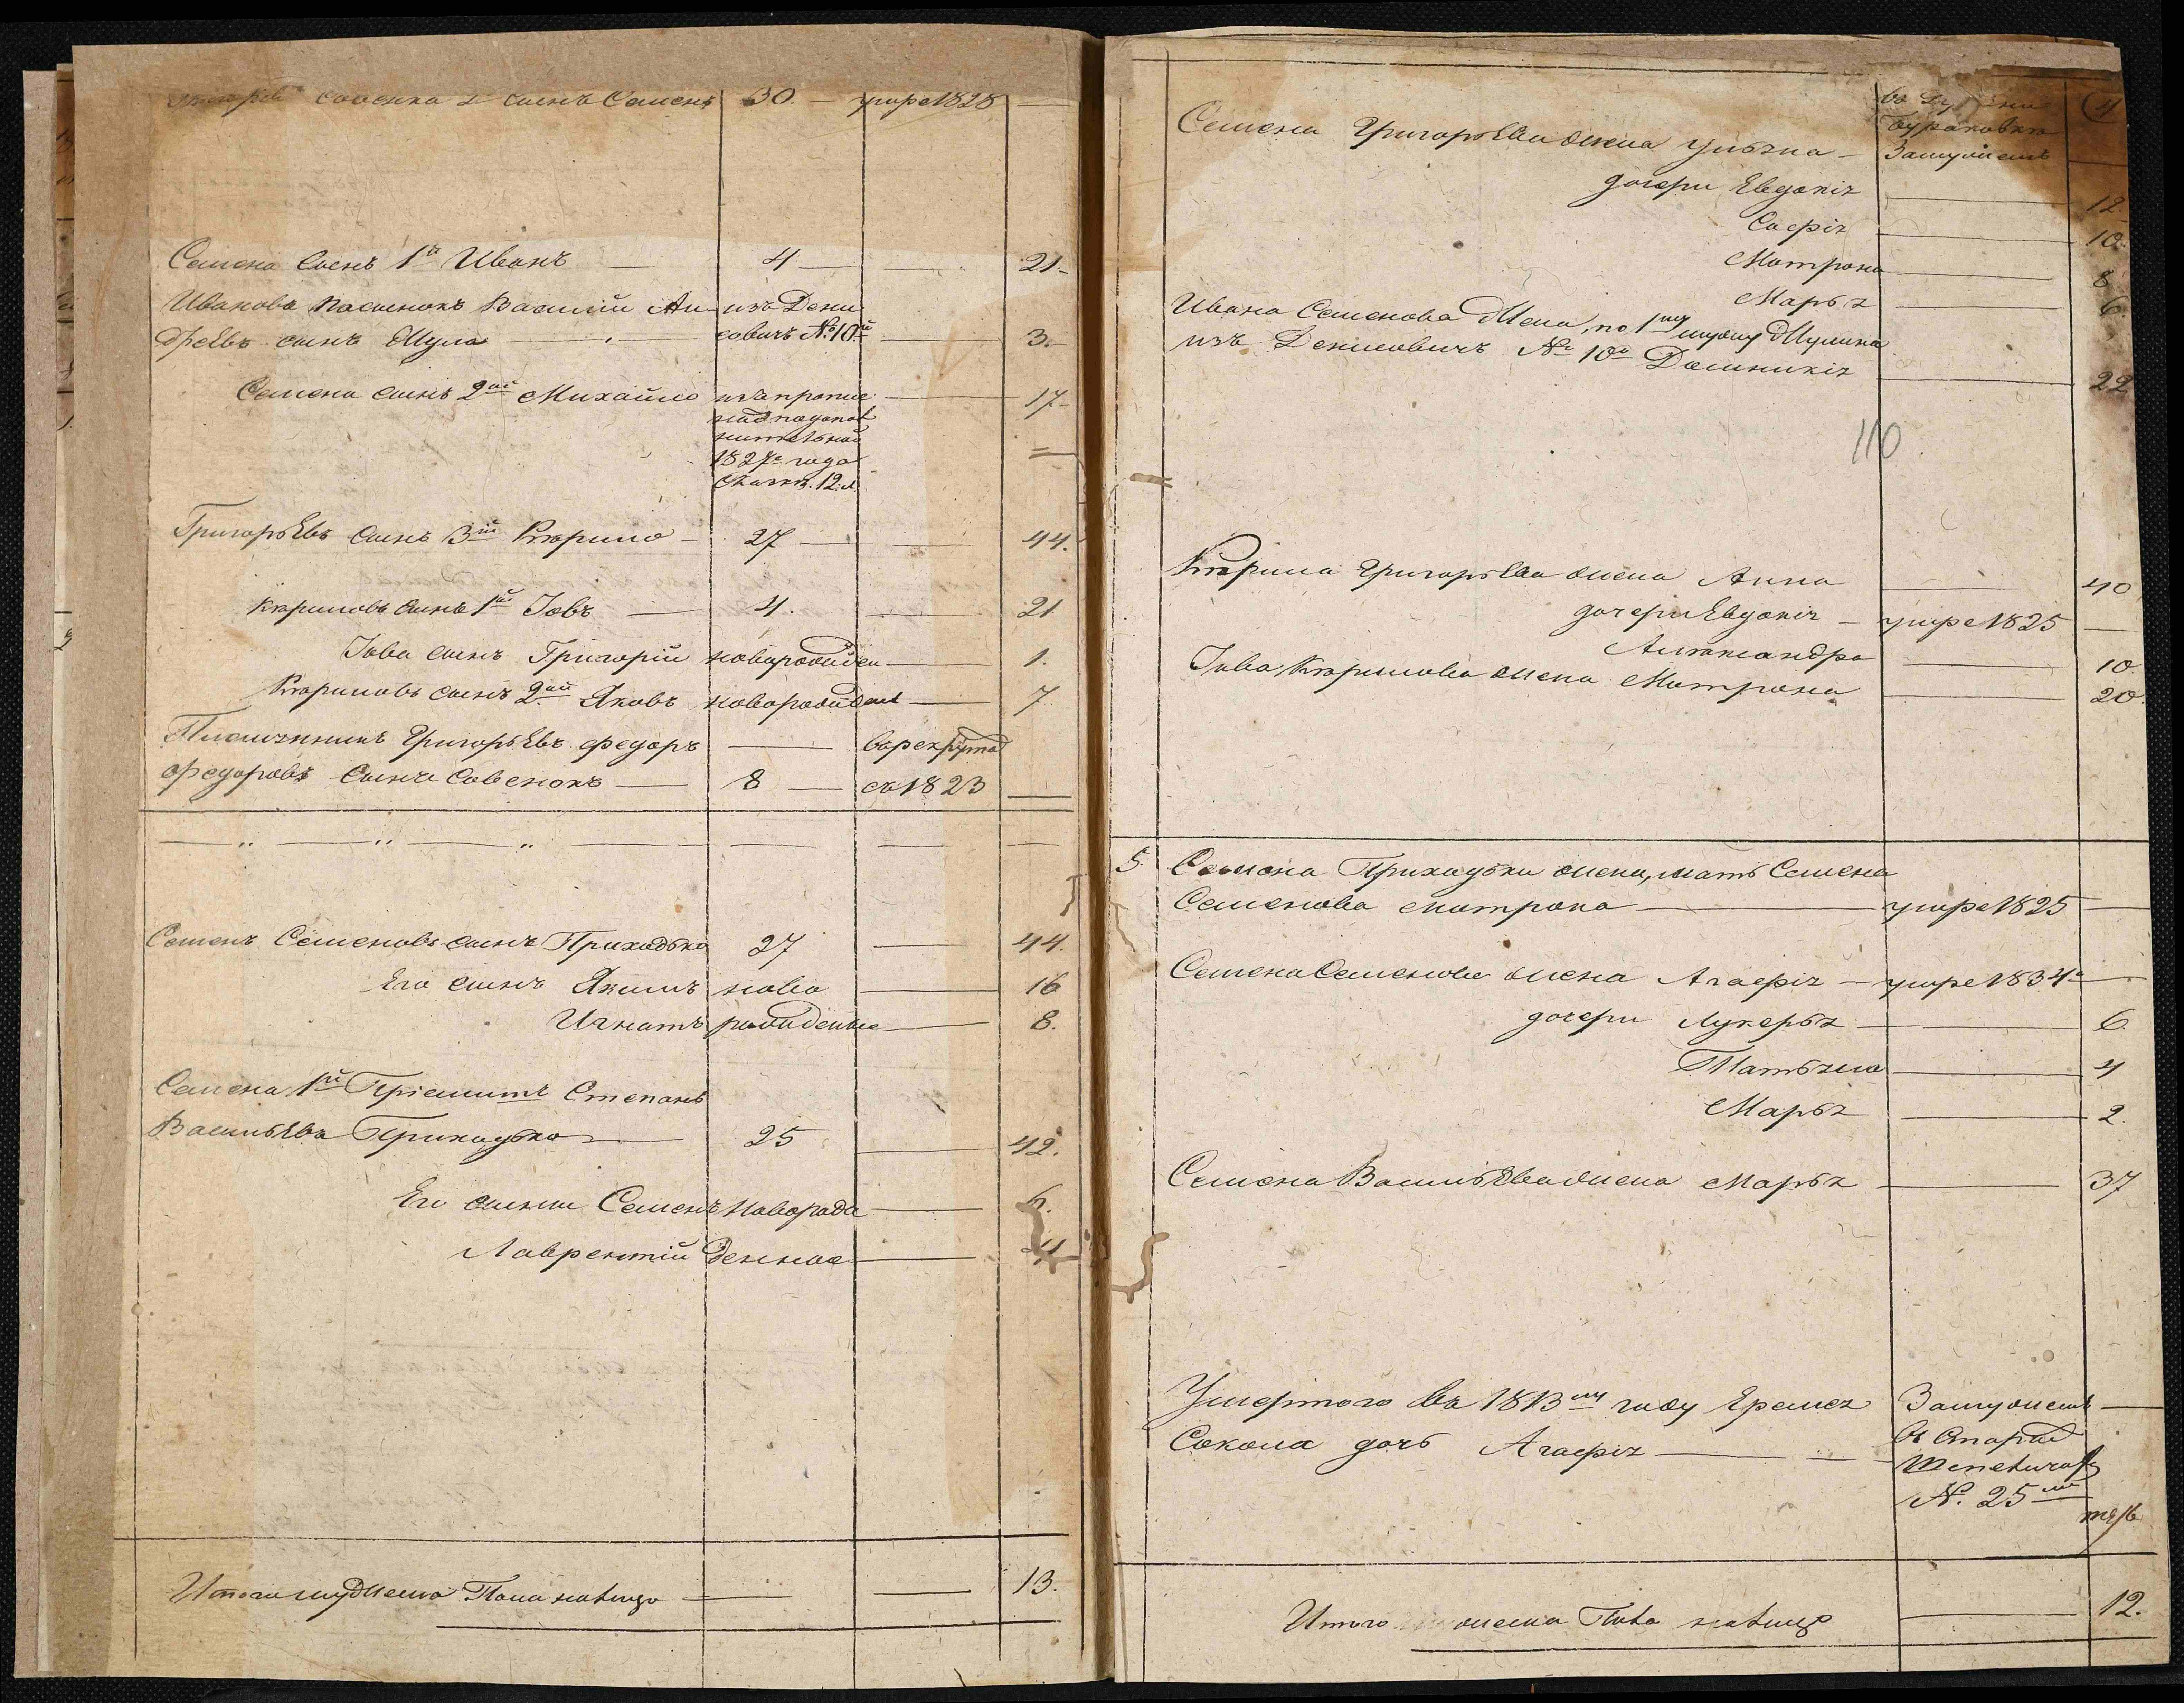 Савенка 2 сынъ Семенъ 30. — умре 1828 —
Семена Сынъ 1й Иванъ — 4 — 21.
Иванова пасынокъ Василій Ан- изъ Дени
дреевъ сынъ Мула — совичъ №10й — 3.
Семена сынъ 2ой Михайло — 17
1827го года
Сказк. 12 л.
Григорьевъ Сынъ 3й Кирило — 27 — 44.
Кириловъ сынъ 1й Іовъ — 4. — 21
Іова сынъ Григорій новорожден — 1.
Кириловъ сынъ 2ой Яковъ новорожден — 7.
Племянникъ Григорьевъ Федоръ — в рекруты
Федоровъ Сынъ Савенокъ — 8 — съ 1823 —
Семенъ Семеновъ сынъ Приходько 27 — 44.
Его сынъ Якимъ ново — 16
Игнатъ рожденые — 8.
Семена 1й Пріемишъ Степанъ
Васильевъ Приходько — 25 — 42.
Его сыны Семенъ новорож — 6.
Лаврентій денные — 4
Итого мужеска Пола налицо — 13.
4
Семена Григорьева жена Ульяна —
Бураковка
Замужемъ
дочери Евдокія — 12.
Софія — 10.
Матрона — 8
Марья — 6.
Ивана Семенова Жена, по 1му мужу Мулина
изъ Денисовичъ № 10й Домникія — 22
110
Кирила Григорьева жена Анна — 40
дочери Евдокія — умре 1825 —
Александра — 10.
Іова Кирилова жена Матрона — 20.
5. Семена Приходьки жена, мать Семена
Семенова Матрона — умре 1825 —
Семена Семенова жена Агафія — умре 1834 —
дочери Лукерья — 6.
Татьяна — 4
Марья — 2.
Семена Васильева жена Марья — 37
Умершого въ 1813му году Еремея Замужемъ —
Сокола дочь Агафія — въ Старой
№. 25
Итого женска Пола налицо — 12.